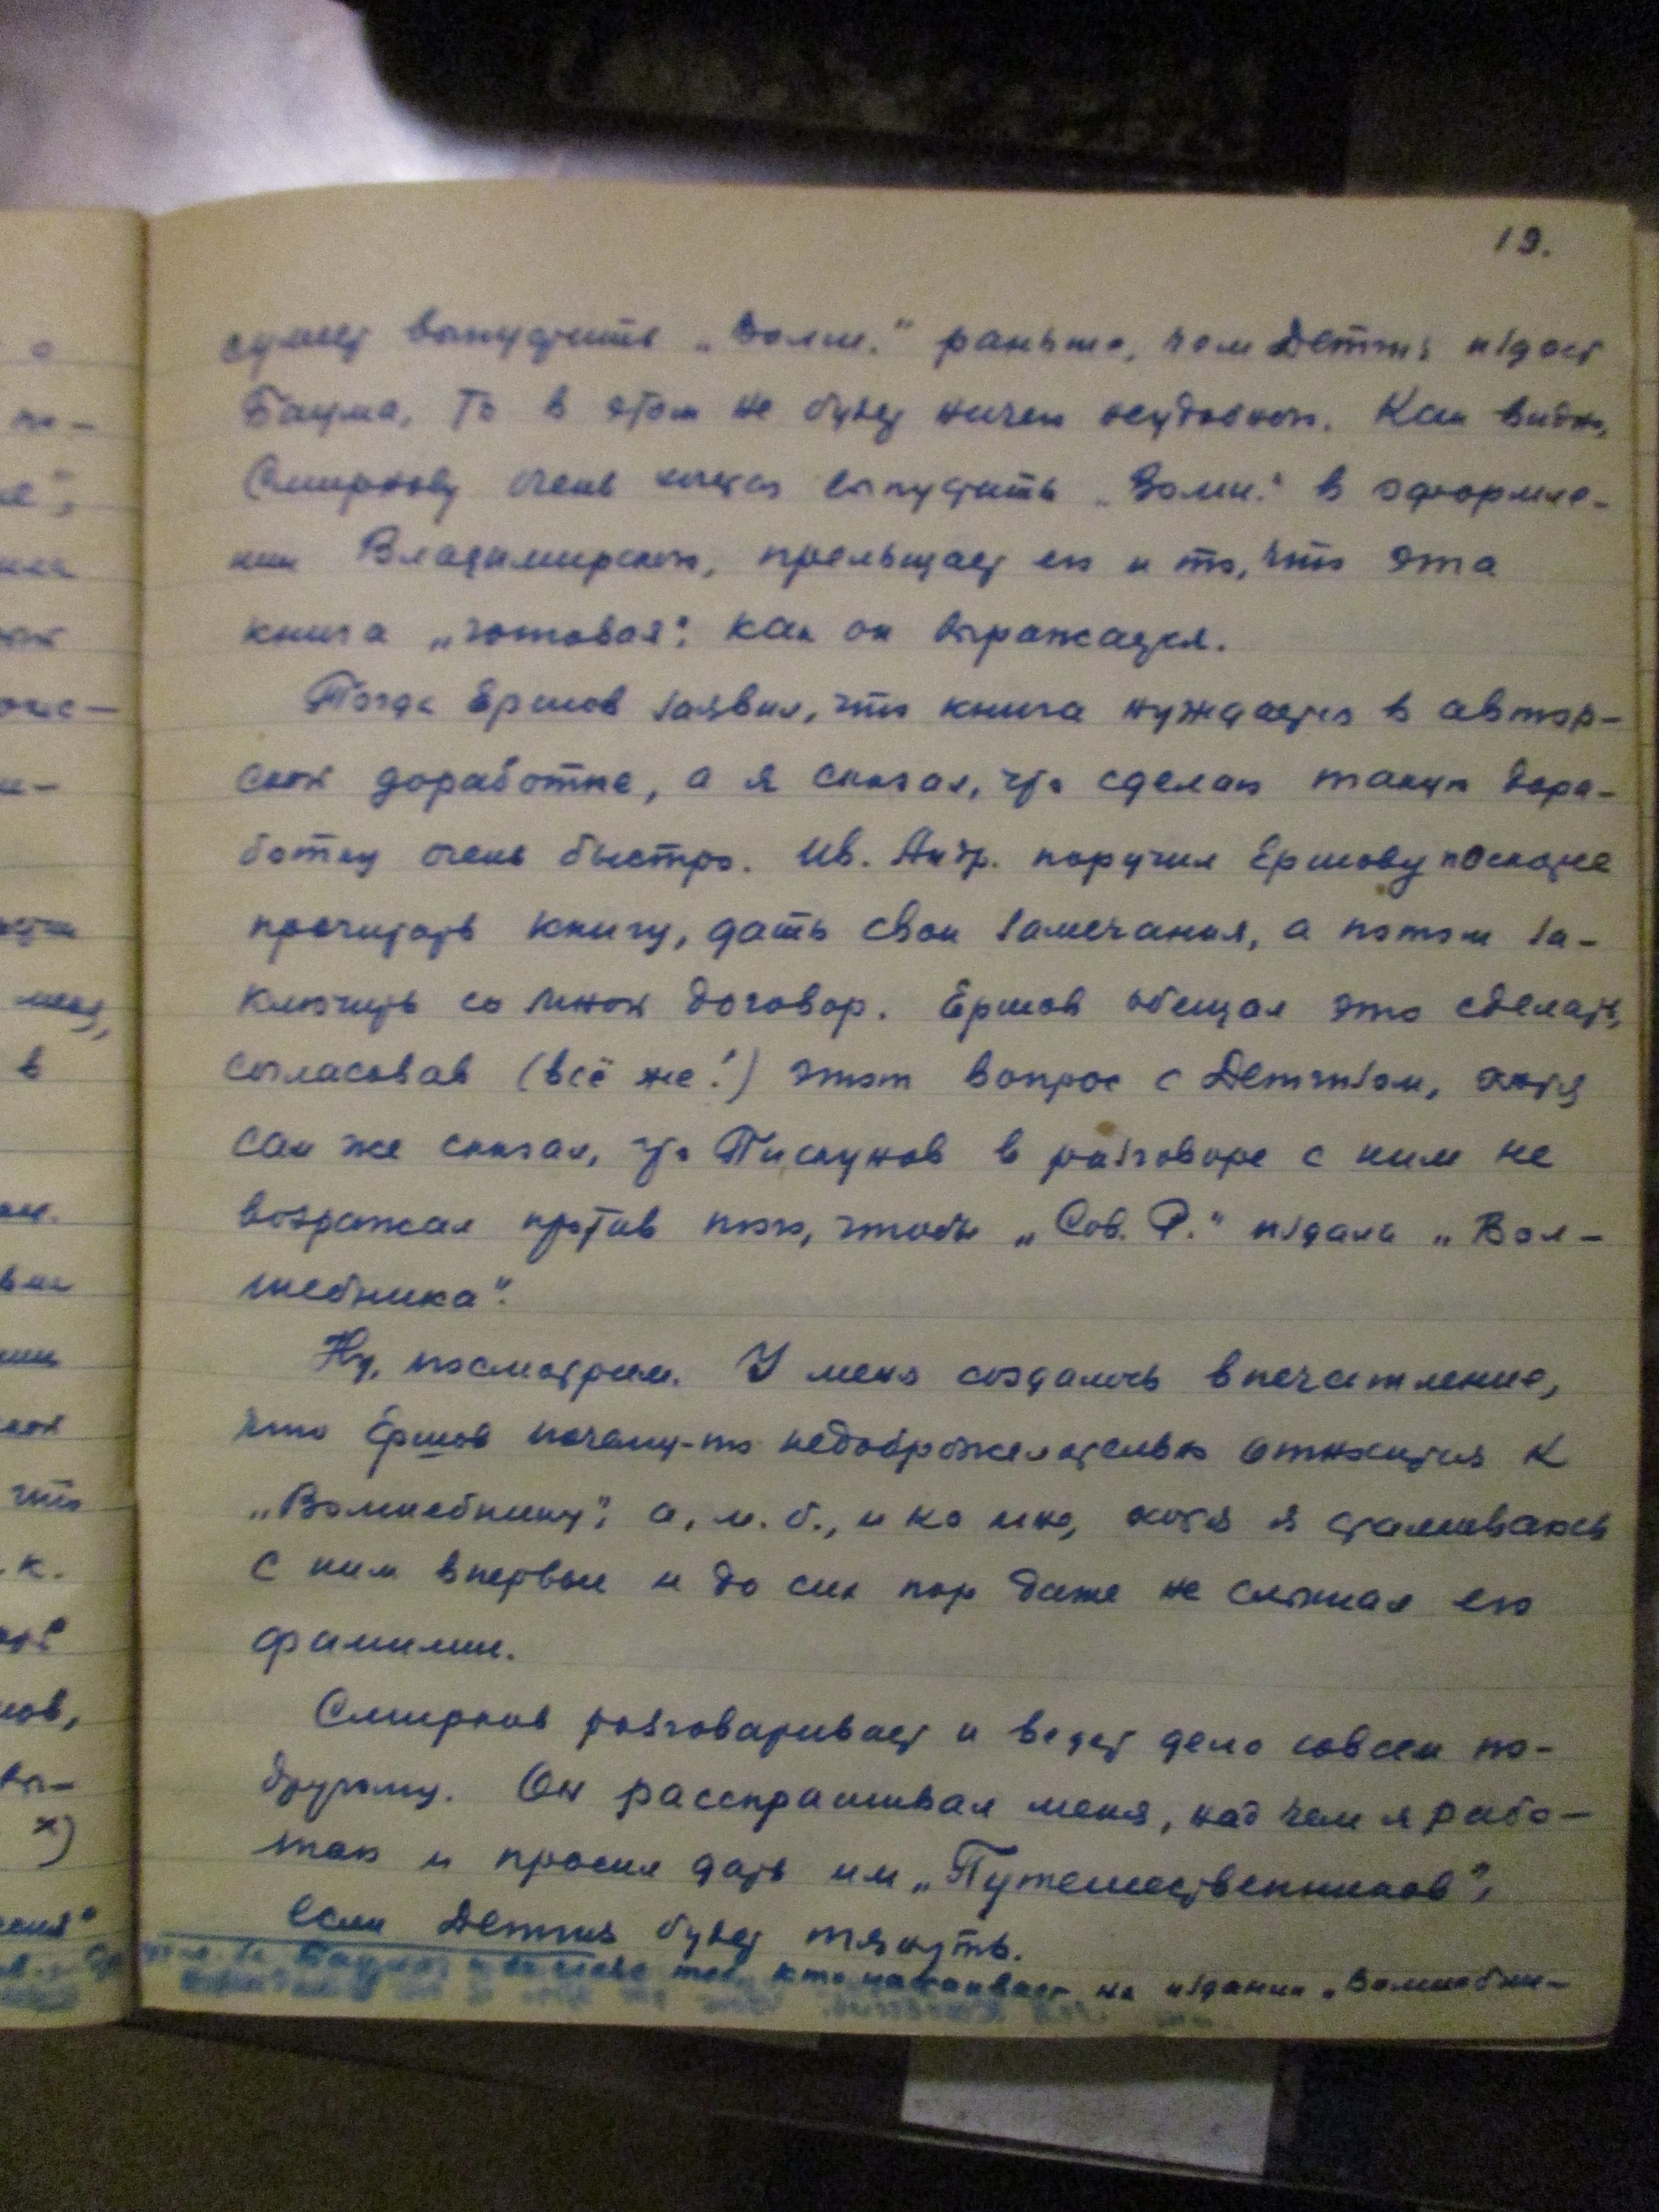 19.
сумеет выпустить „Волш." раньше, чем Детгиз издаст
Баума, то в этом не будет ничего неудобного. Как видно,
Смирнову очень хочется выпустить „Волш." в оформле-
нии Владимирского, прельщает его и то, что эта
книга „готовая", как он выражается.
Тогда Ершов заявил, что книга нуждается в автор-
ской доработке, а я сказал, что сделаю такую дора-
ботку очень быстро. Ив. Андр. поручил Ершову поскорее
прочитать книгу, дать свои замечания, а потом за-
ключить со мной договор. Ершов обещал это сделать,
согласовав (всё же!) этот вопрос с Детгизом, хотя
сам же сказал, что Пискунов в разговоре с ним не
возражал против того, чтобы „Сов. Р." издала „Вол-
шебника".
Ну, посмотрим. У меня создалось впечатление,
что Ершов почему-то недоброжелательно относится к
„Волшебнику", а, м. б., и ко мне, хотя я сталкиваюсь
с ним впервые и до сих пор даже не слыхал его
фамилии.
Смирнов разговаривает и ведет дело совсем по-
другому. Он расспрашивал меня, над чем я рабо-
таю и просил дать им „Путешественников",
если Детгиз будет тянуть.
кто настаивает на издании „Волшебни-